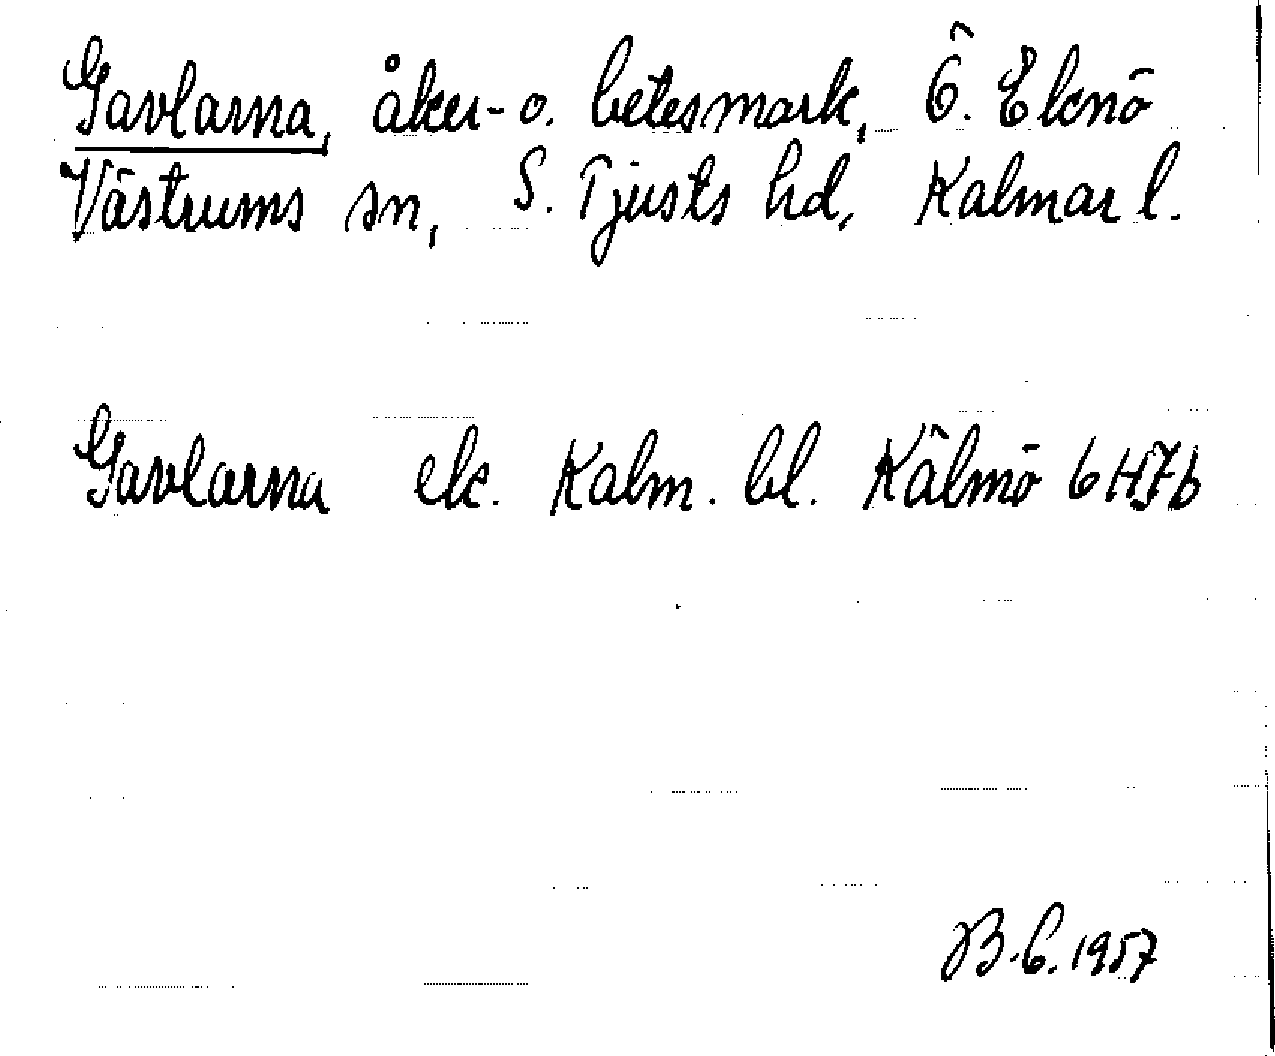 Gavlarna, åker- o. betesmark, Ö. Eknö
Västrums sn, S. Tjusts hd, Kalmar l.
Gavlarna ek. Kalm. bl. Kålmö 6H7b
B.E. 1957